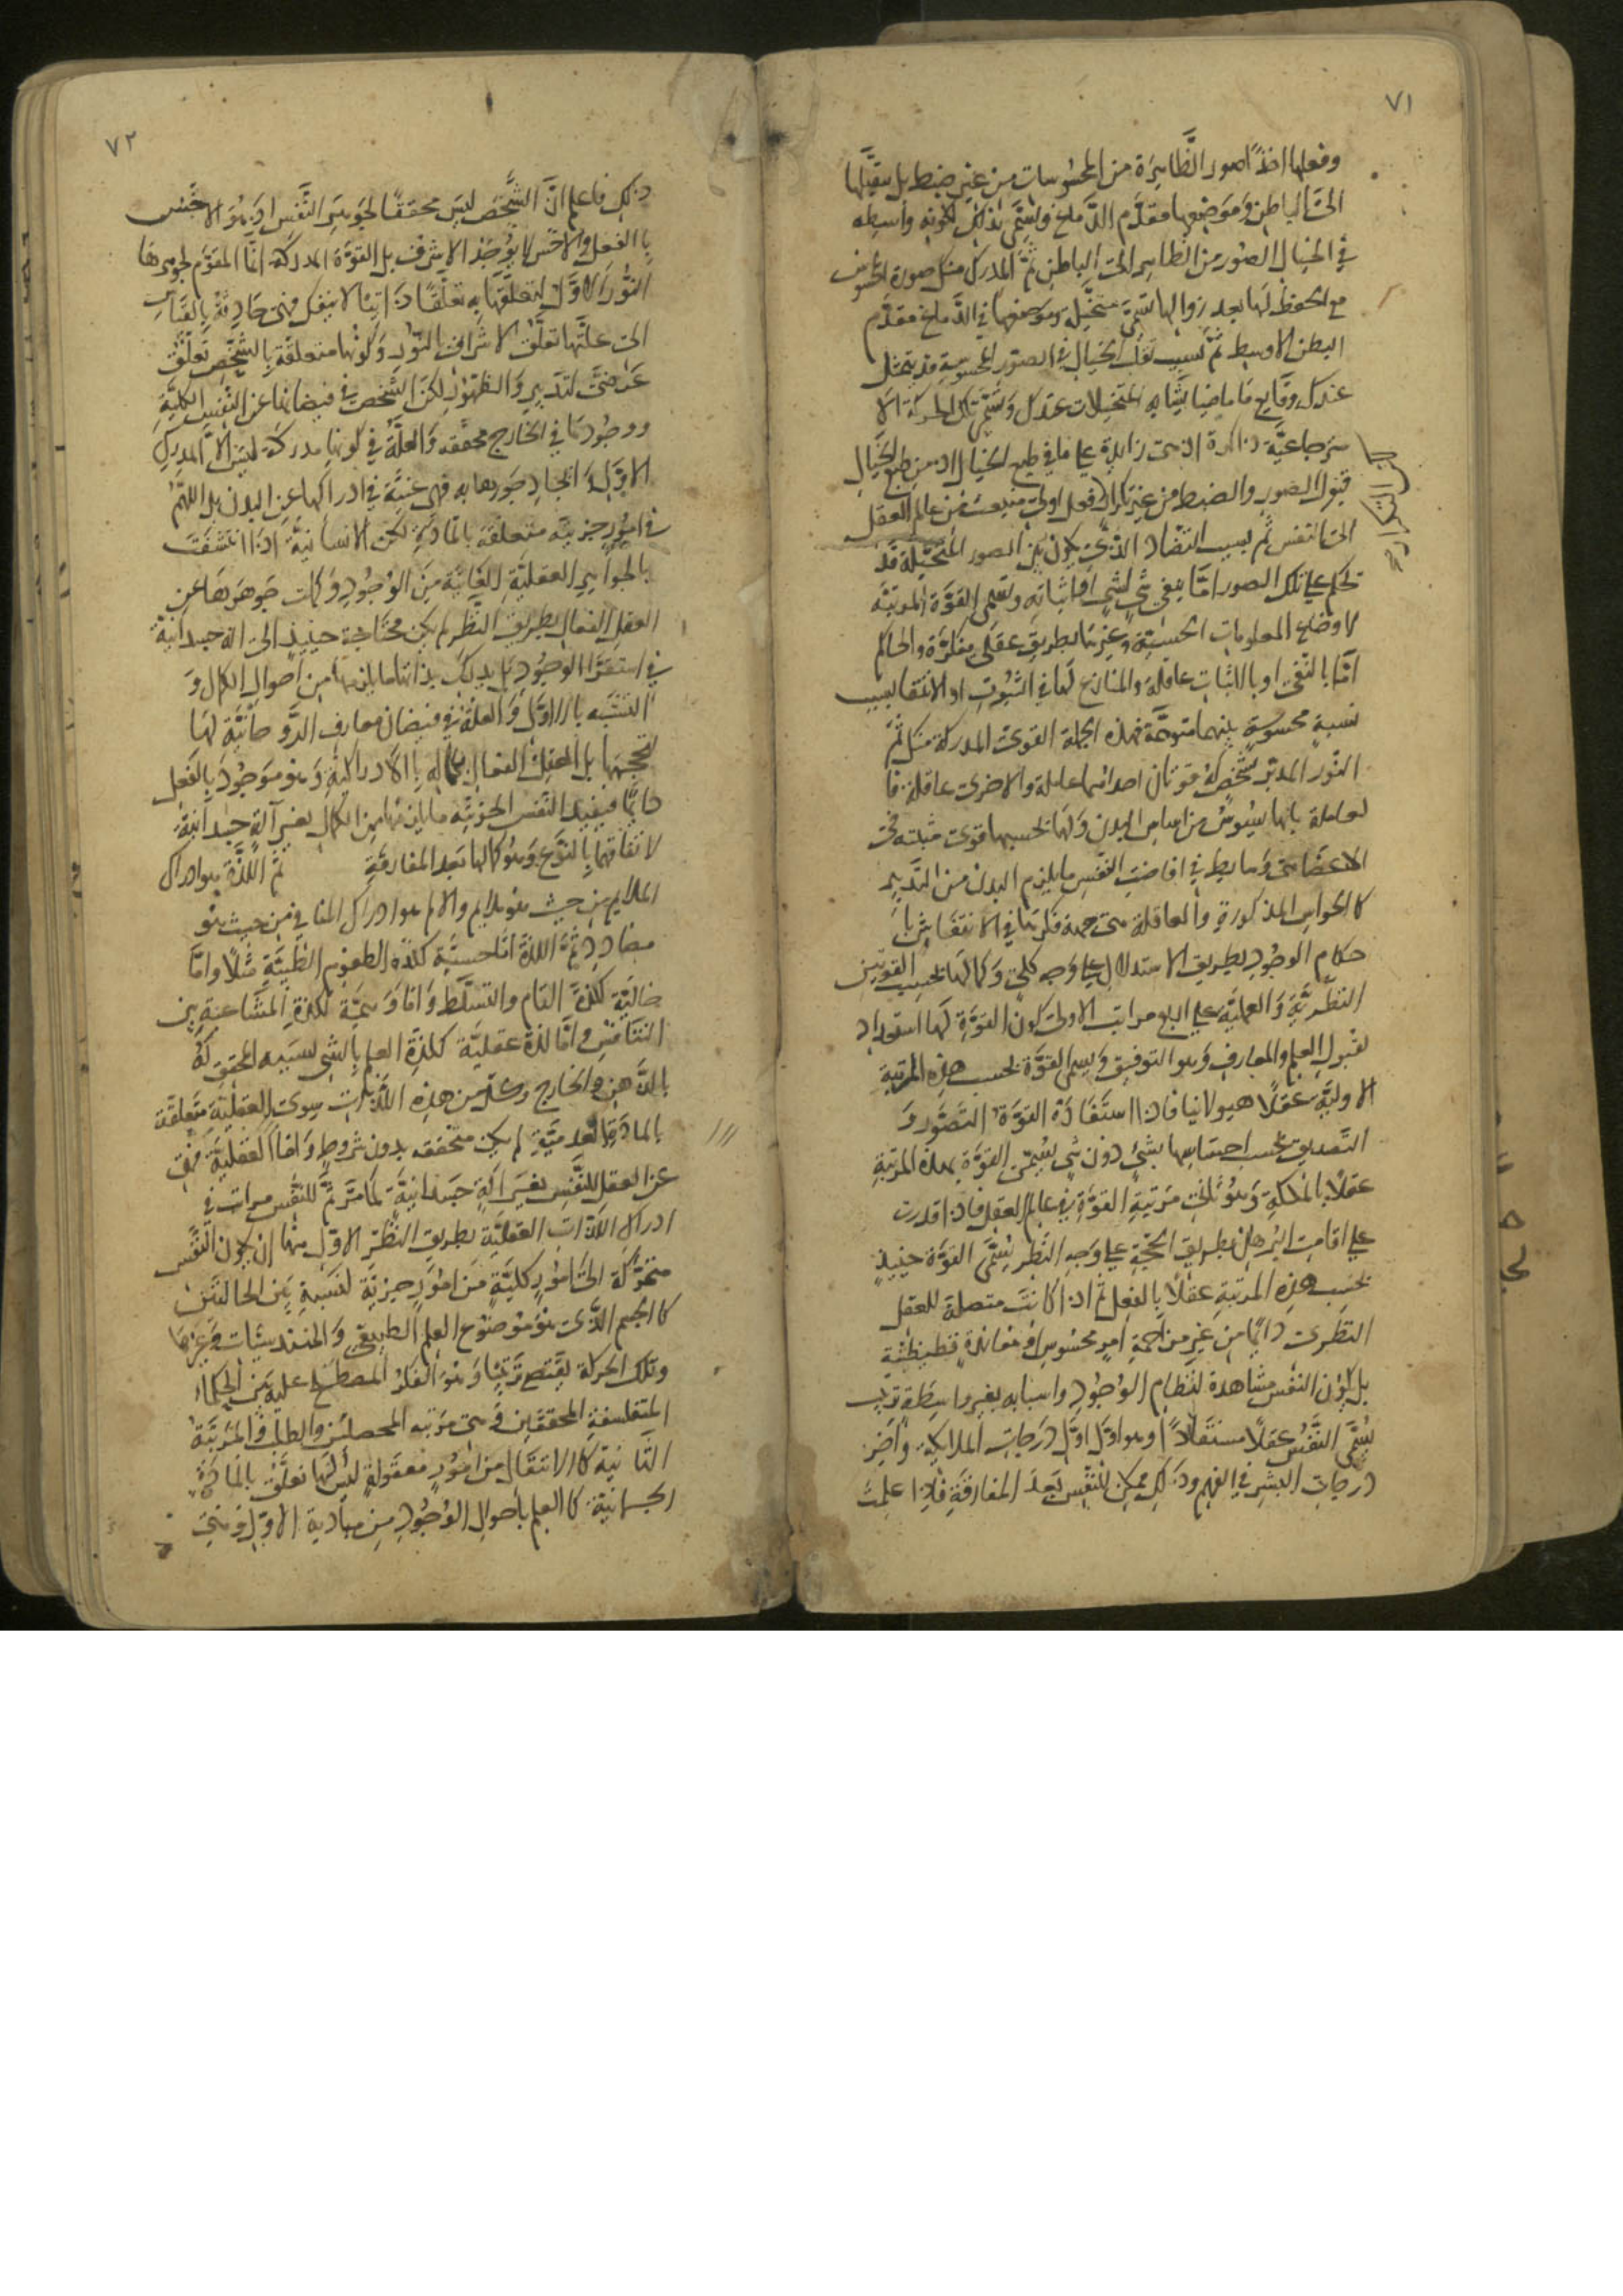 ٧١
وفعلها اخذ الصور الظَّاهِرَة من المحسُوسات من غير ضبط بل يتقبَّلها
الى الباطن وَموَضِعها مقدَّم الدِّماغ وتسَمَّى بذلك لكونه واسطه
في الخيال الصُور من الظاهر الى الباطن ثمَّ المدرك منك صورة المحسُوس
مع الحفظ لهَا بعد زوالها تسَمَّى متخيّله وموضعها في الدِّماغ مقدَّم
البطن الاوسط ثمَّ بسبب تقلب الخيال في الصور المحسوسة قد يتمثل
عندك وقايع مَا ماضيا يشابه المتخيلات عندك وَتسَمَّى تلك الحركة الا
سترجاعيَّة ذاكرة اذ هى زايدة على ما في طبع الخيال اذ من طبع الخَيال
قبول الصور والضبط من غير تكرار فعل اولى منبعث من عالم العقل
الى النفس ثم بسبب التضاد الذّى يكون بين الصور المتخيَّلة قد
تحكم على تلك الصور امَّا بنفى شي لشي اواثباته وتسَمى القوَّة المرتبَّه
لاوضاع المعلومات الحسيّة وغيرها بطريق عقلى مفكرَّة والحاكم
امَّا بالنَّفى او بالاثبات عاقلة والمنازع لهَا في الثبُوت او الانتفا بسبب
نسبةٍ محسوسةٍ بينهما متوهَّمة فهذه الجملة القوىَ المدركة منك ثمَّ
النّور المدبّر لشَخصِك قوتان احداهما عاملة والاخرى عاقلة فا
لعاملة بانها سُيوسُ من اساس البدن وَلهَا بحسبها قوى مثبته فى
الاعضا هى وَسايط في افاضت النفس مايلزم البدن من التَّدبير
كالحواس المذكورة والعاقلة هى جهة فكرتها في الانتقاش با
حكام الوجُود بطريق الاستدلال على وَجهٍ كليّ وَكمالها بحسب القوتين
النظريَّة وَالعمليَّة على اربع مراتب الاولى كون القوَّة لهَا استعداد
لقبول العلم والمعارف وَهو التوفيق وَيسمى القوَّة بحسب هذه المرتبة
الاوليَّه عقلًا هيولانيا فاذا استَفَادَة القوَّة التصَّور وَ
التَّصديق بحسب احساسها بشئ دون شي يُسَمّى القوَّة بهذه المرتبة
عقلًا بالملكةِ وَهوُ ثانى مَرتبةِ القوَّةِ في عالم العقل فاذا قدرت
على اقامت البُرهان بطريق الحجّة على وَجهِ النَّظر تُسَمَّى القوَّة حينيذٍ
بحسب هذه المرتبة عقلًا بالفعل ثم اذا كانت متصلة للعقل
النظرى دائمًا من غير مزاحمة امرٍ محسُوس او معاندةٍ
بل يكون النفس مشاهدة لنظام الوُجوُد واسبابه بغير واسِطَة ترتب
يُسَمَّى النَّفْسُ عقلًا مستَفادًا وهو اوَّل اوَّل دَرَجاتِ الملايكة وَاَخِر
درجات البشر في الفهم وذلك ممكن للنَّفْس بَعدَ المفارقَةِ فاذا علمتَ
على التكرار صح
٧٢
ذلك فاعلم انَّ الشَّخص ليسَ محققًا لجوهر النَّفْس اذ هوَ الاخسّ
بالفعل والاخسّ لا يوُجِدُ الاشرف بل القوَّة المدركة انَّما المقوَّم لجوهرهَا
النُّور الاوَّل لتعلقَها به تعلقًا ذاتيًا لا ينفك فهى جَاذِبة بالذات
الى علتَّها تعلّق الاشراق بالنوُر وَكونُها متعلقَة بالشَّخص تعَلّق
عَرَضيّ لتدبير وَالظّهور لكنَّ الشَّخص في فيضانها عن النَّفسِ الكليّة
ووجُودها في الخارج محقّقه والعلَّة في كونها مدركة ليسَ الَّا المدرك
الاوّل وَايجادِ جَوهَرها به فهى غنيَّة في ادراكها عن البدن بل اللهمَّ
في امُورٍ جزيّة متعلقة بالمَادَّة لكن الانسانيَّة اذَا انتقشت
بالجواهر العقليّة الغايَبَة مِنَ الوُجوُد وَكملت جَوهَرهَا عن
العقلِ الفعال بطريق النَّظر لم يكن محتَاجة حينيذٍ الى الة جسدانيّة
في استقرَا الوجُود بل يدرك بذاتها مايلزمها من احوال الكمال وَ
التشبّه بالاوَّل وَالعلَّة في فيضان معارف الرَّوحَانيَّة لهَا
بل العقل الفعال بكماله بالادراكية وَهو موَجوُدَ بالفعل
دايمًا فيفيد النَّفس الجزئيّه مايلزمها من الكمال بغير آلةٍ جسدَانيّة
لاتفاقهما بالنوَّع وَهوُ كمالها بَعد المفارقَةِ ثمَّ اللَّذة هو ادراك
الملايم من حيث هو ملايم والالم هوا ادراك المنافي من حيث هو
مضادد ثمَّ اللذة امَّا حسيَّة كلذة الطعوم الطيّبَةِ مثلًا وامّا
خاليّة كلذة القام والتسَلّط وَامّا وَهميَّة كلذةِ المشَاعبة بين
المتنافسَين وامَّا لذة عقليَّة كلذة العلم بالشى بسببه المحقق لهُ
بالذهن والخارج وكلّ من هذه اللذات سوى العقليّة متعلّقة
بالمادَّة العدميّةِ لم يكن متحققه بدون شروطٍ وَامَّا العقليَّة فهى
عن العقل للنَّفس بغير آلةٍ جسدانيّة لمَا مَرَّ ثمَّ للنَّفس مراتب في
ادراك اللَّذَّات العقليَّة بطريق النَّظر الاوّل منها ان يكون النَّفس
متحرّكة الى امُورٍ كليَّةٍ مَن امُورٍ جزئيَّة لنسَبةٍ بَين الحالتَين
كالجسم الذَّى هو موضوع العلم الطبيعّي وَالهندسيّات وَغيرهَا
وتلك الحركة يقتضى ترتيبًا وَهو الفكر المصطلح عليه بين الحكماء
المتفلسفة المحققّين وَهى مَرتبة المحصلين والطلب والمرتبة
الثانية كالانتقال من امُورٍ معقولةٍ ليسَ لهَا تعلّق بالمادَّة
الجسمانيّة كالعلم باحوالِ الوُجوُد من مباديه الاوَّل وَهى